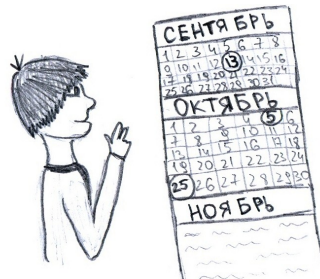 СЕНТЯБРЬ
1 2 3 4 5 6 7 8
9 10 11 12 13 14 15 16
17 18 19 20 21 22 23 24
25 26 27 28 29 30 31
ОКТЯБРЬ
1 2 3 4 5 6
7 8 9 10 11 12
13 14 15 16 17 18
19 20 21 22 23 24
25 26 27 28 29 30
НОЯБРЬ